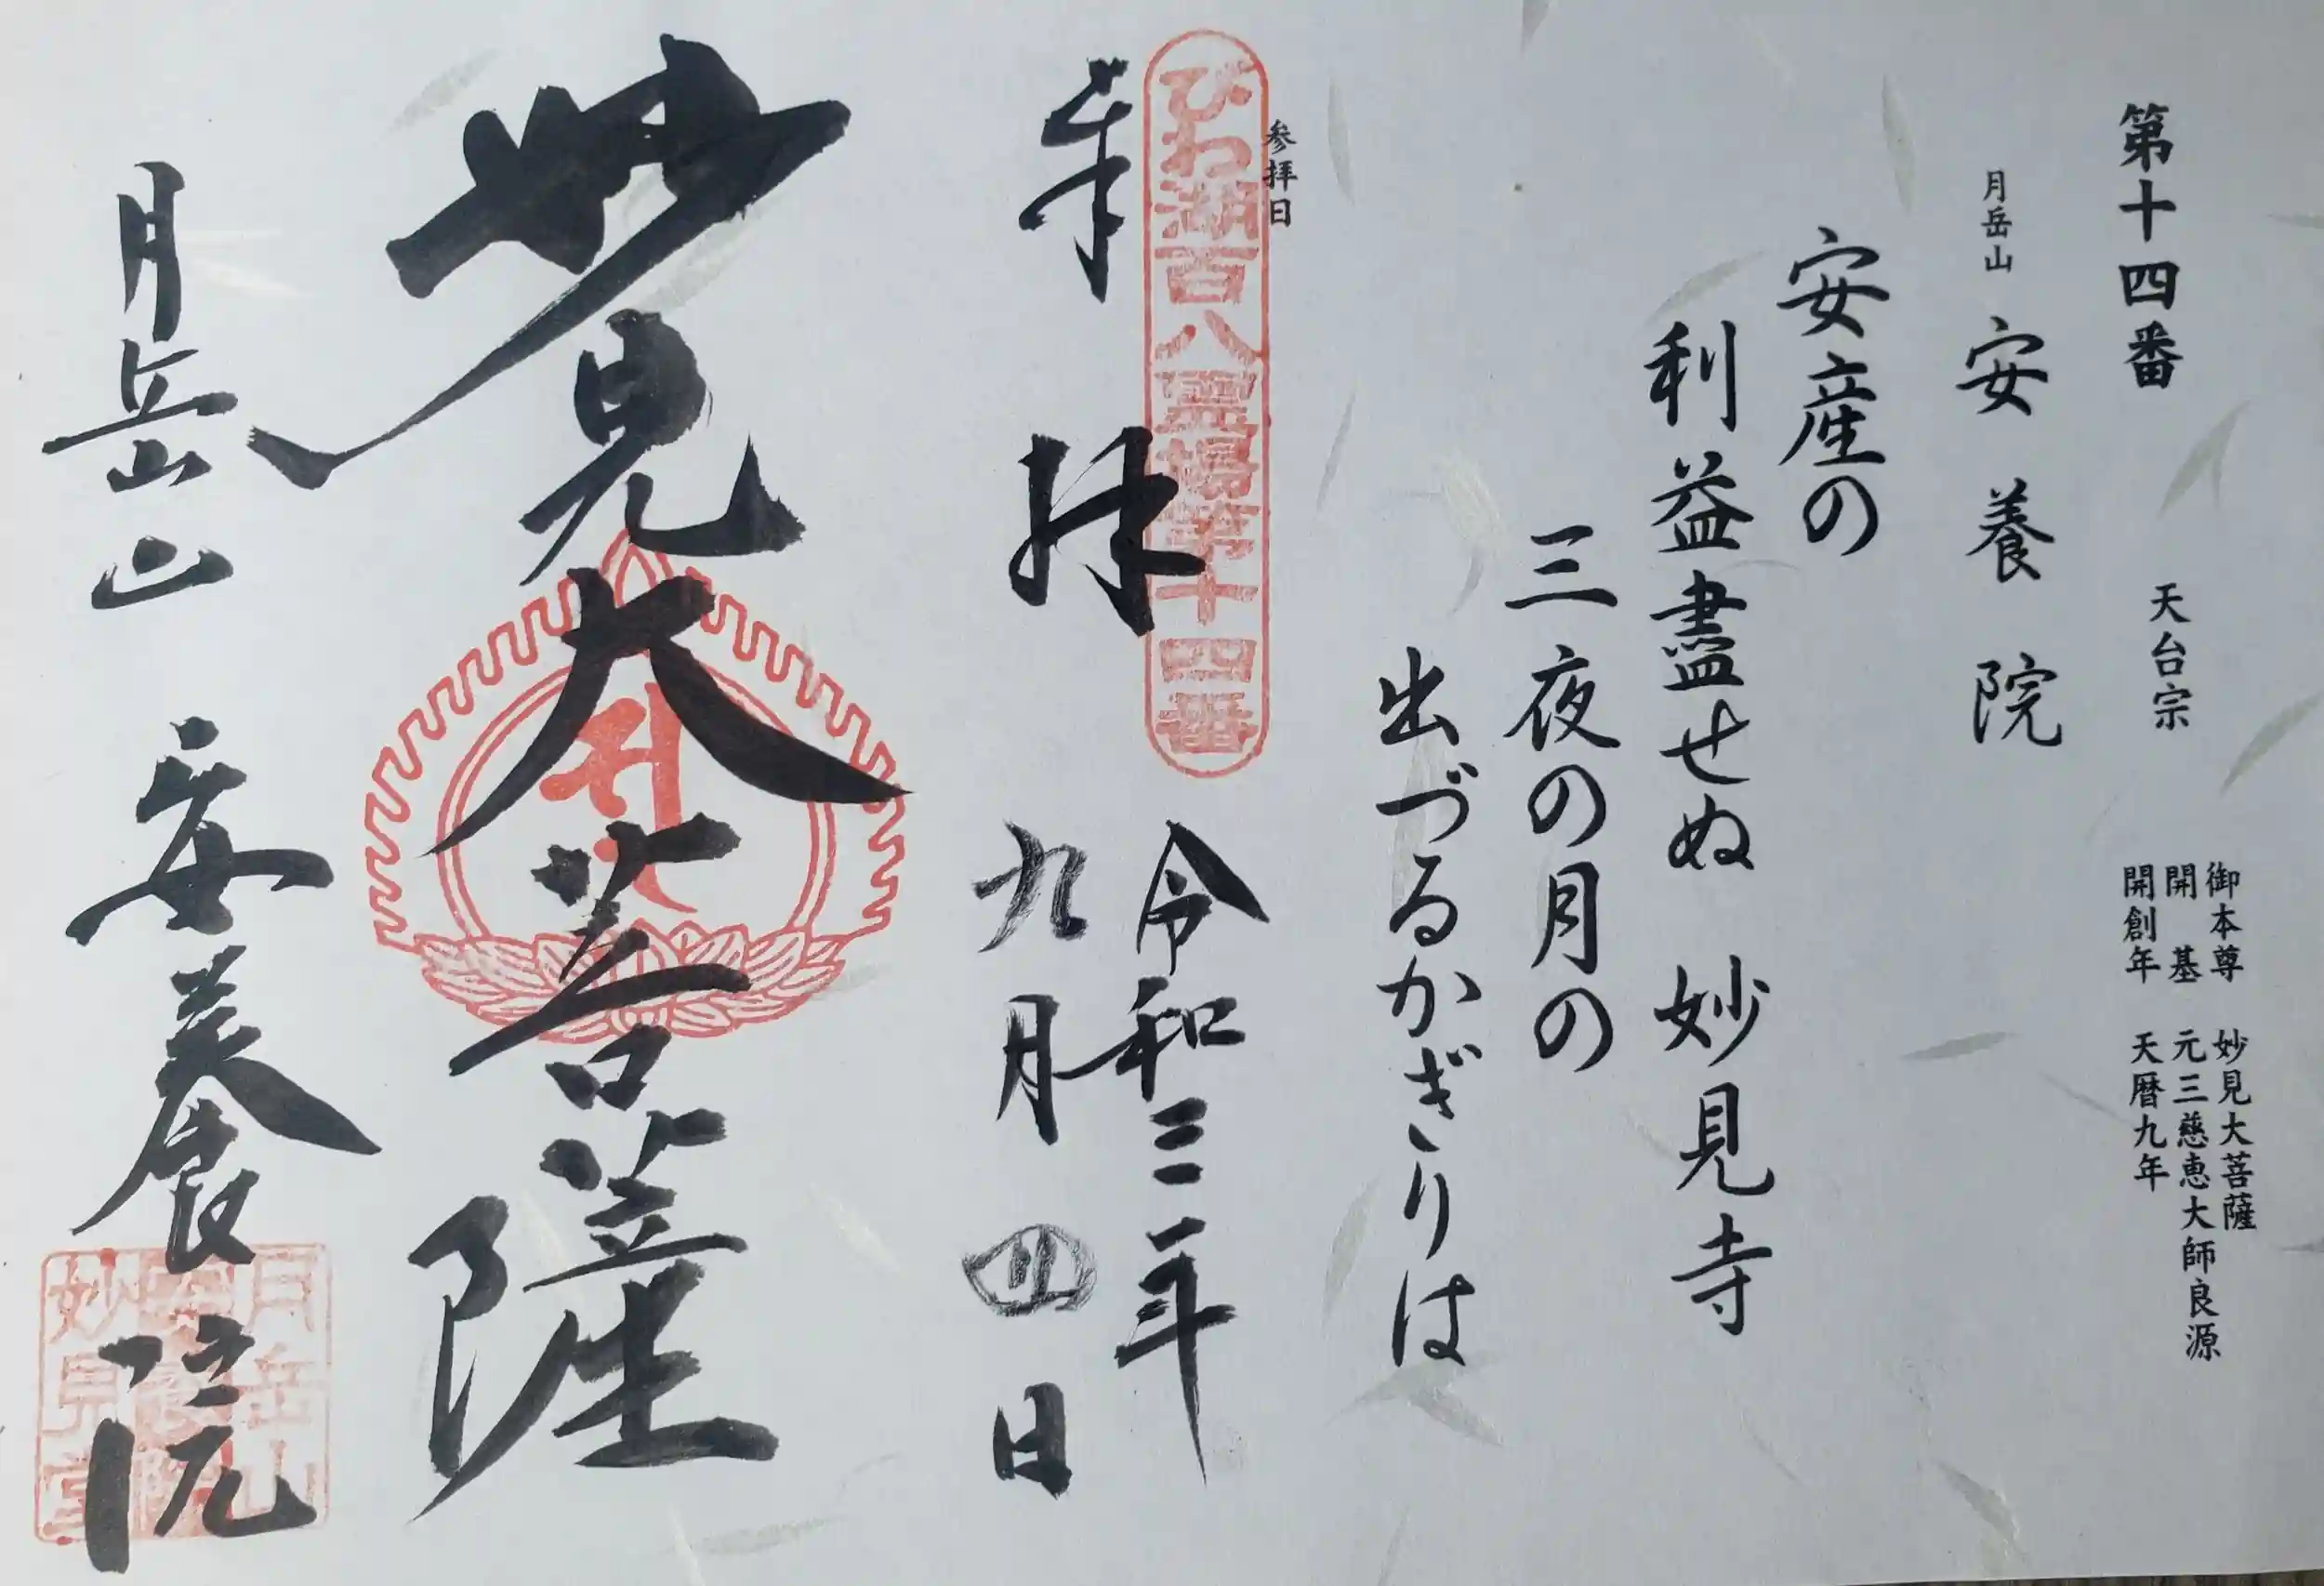 第十四番 天台宗
御本尊 妙見大菩薩
開基 元三慈恵大師良源
開創年 天暦九年
月岳山 安養院
安産の
利益盡せぬ 妙見寺
三夜の月の
出づるかぎりは
参拝日
びわ湖百八霊場第十四番
奉拝
令和三年
九月四日
妙見大菩薩
月岳山 安養院
月岳山
安養院
妙見宮